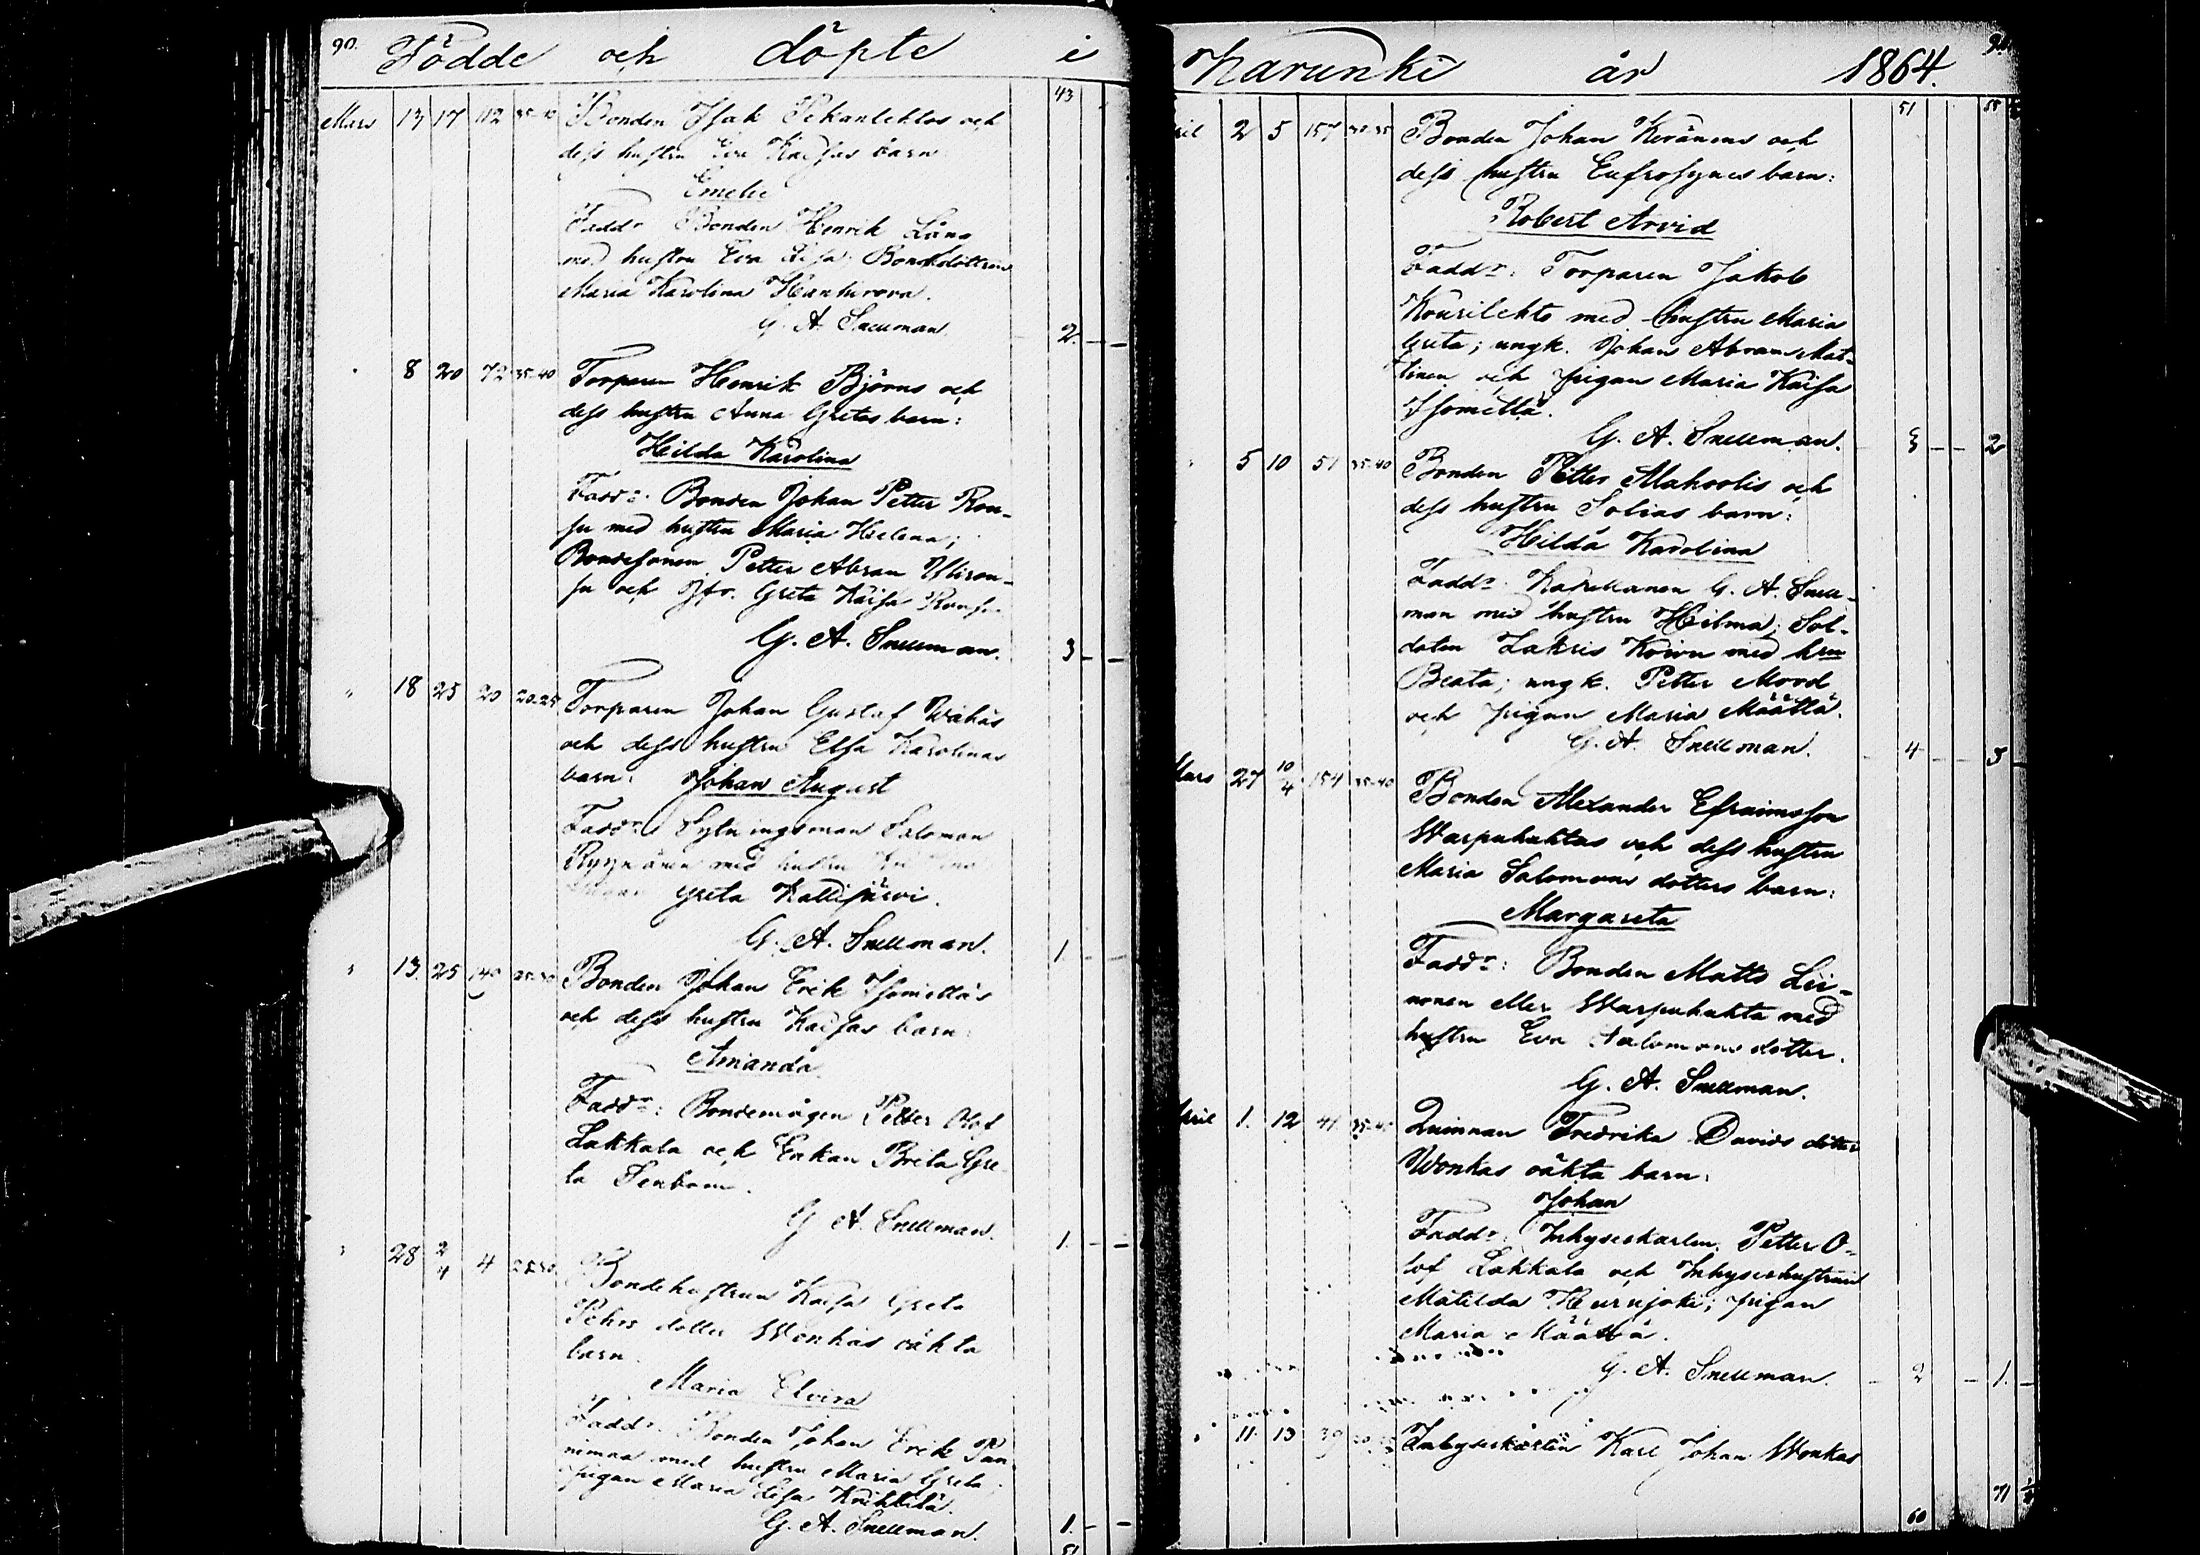 90. Födde och döpte i
43
Mars 13 17 112 35-40 Bonden Isak Pekanlehtos och
dess hustru Eva Kaisas barn
Emelie
Faddr Bonden Henrik Lång
med hustru Eva Lisa; Bondedottren
Maria Karolina Hanhirova.
G. A. Snellman. 2. - -
8 20 72 35-40 Torparen Henrik Björns och
dess hustru Anna Gretas barn:
Hilda Karolina
Faddr. Bonden Johan Petter Ron-
su med hustru Maria Helena;
Bondesonen Petter Abram Yliron-
su och Jfr. Greta Kaisa Ronsu.
G. A. Snellman. 3 - -
" 18 25 20 20-25 Torparen Johan Gustaf Wähäs
och dess hustru Elsa Karolinas
barn: Johan August
Faddr: Sytningsman Salomon
med hustru
Greta Kallijärvi.
G. A. Snellman. 1. - -
" 13. 25 140 25-30 Bonden Johan Erik Isomettäs
och dess hustru Kaisas barn
Amanda
Faddr: Bondemågen Petter Olof
Lakkala och Enkan Brita Gre-
ta Stenbom.
G. A. Snellman. 1. - -
" 28 2/4 4 25-30 Bondehustrun Kaisa Greta
Pehrs dotter Wonkas oäkta
barn.
Maria Elvira
Faddr. Bonden Johan Erik Pan
nimaa med hustru Maria Greta.
Pigan Maria Lisa
G. A. Snellman. 1. - -
51
Karunki år 1864. 91
51 58
April 2 5 157 30-35 Bonden Johan Keränens och
dess hustru Eufrosynes barn:
Robert Arvid
Faddr: Torparen Jakob
Kourilehto med hustru Maria
Greta; ungk. Johan Abram Mat-
tinen och pigan Maria Kaisa
Isomettä.
G. A. Snellman. - 3 - - 2
" 5 10 51 35-40 Bonden Petter Makoolis och
dess hustru Sofias barn:
Hilda Karolina
Faddr. Kapellanen G. A. Snell-
man med hustru Hilma; Sol-
daten Zakris Koivu med hru
Beata; ungk. Petter Mood
och pigan Maria Määttä.
G. A. Snellman. - 4 - - 3
Mars 27 10/4 154 35-40 Bonden Alexander Efraimsson
Warpuhahtas och dess hustru
Maria Salomons dotters barn:
Margareta
Faddr: Bonden Matts Lii-
nonen eller Warpuhahta med
hustru Eva Salomons dotter.
G. A. Snellman.
April 1. 12 41 35-40 Quinnan Fredrika Davids dotter
Wonkas oäkta barn:
Johan
Faddr. Inhyseskarlen Petter O-
lof Lakkala och Inhyseshustrun
Matilda Kurujoki; pigan
Maria Määttä.
G. A. Snellman. - 2 - 1. -
" 11. 13 39 Inhyseskarlen Karl Johan Wonkas
60 71